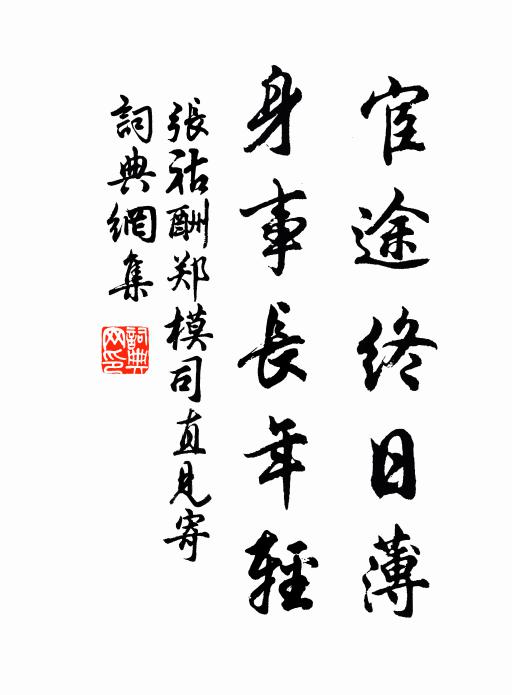 宦途終日薄
身事長年輕
張祜酬郑模司直見寄
詞典網集
詞典
网印